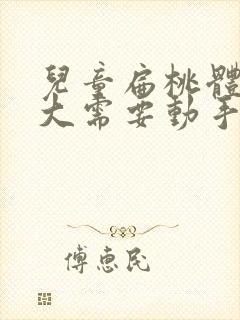 兒童扁桃體
大需要動手
傅惠民